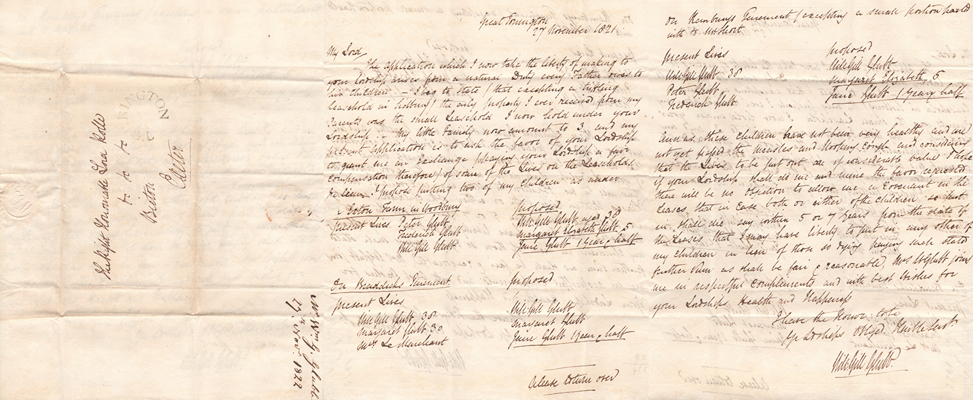 The Right Honorable Lord Rolle
&c &c &c
Bicton
Exeter
RINGTON
Mr Wm Gill Glubb
27th Novr 1822
Great Torrington
27 November 182
My Lord
The application which I now take the liberty of making to
your Lordship arises from a natural Duty every Father owes to
his Children — I beg to state (that excepting a trifling
leasehold in) the only property I ever received from my
Parents was the small Leasehold I now hold under your
Lordship — My little Family now amount to 3 and my
present application is to ask the favor of your Lordship
to grant me in Exchange (paying your Lordship a fair
compensation therefore) of some of the Lives on the Leaseholds
I propose putting two of my children as under
Farm in Woodbury
Present Lives Peter Glubb
Frederick Glubb
Will Gill Glubb
proposed
Will Gill Glubb aged 38
Margaret Elizabeth Glubb 5
June Glubb 1 year & half
On Tenement
present Lives
Will Gill Glubb 38
Margaret Glubb 30
Mrs Le Marchant
proposed
Will Gill Glubb
Margaret Glubb
June Glubb 1 year & half
Please turn over
On Hamburys Tenement (excepting a small portion
with
Present Lives
Will Gill Glubb 38
Peter Glubb
Frederick Glubb
proposed
Will Gill Glubb
Margaret Elizabeth 5
June Glubb 1 year & half
as these children have not been very healthy and have
not yet passed the Measles and Hooping Cough and considering
that the Lives to be put out are of considerable value I hope
if your Lordship shall do me and mine the favor requested
there will be no objection to allow me a Covenant in the
Leases, that in Case both or either of the children so put
in, shall die say within 5 or 7 years from the date of
the Leases that I may have liberty to put in any other of
my children in lieu of those so dying paying such stated
further Sum as shall be fair & reasonable Mrs W Glubb joins
me in respectful compliments and with best wishes for
your Lordships Health and Happiness
I have the Honor to be
Yr Lordships Obliged Humble Servt
Will Gill Glubb